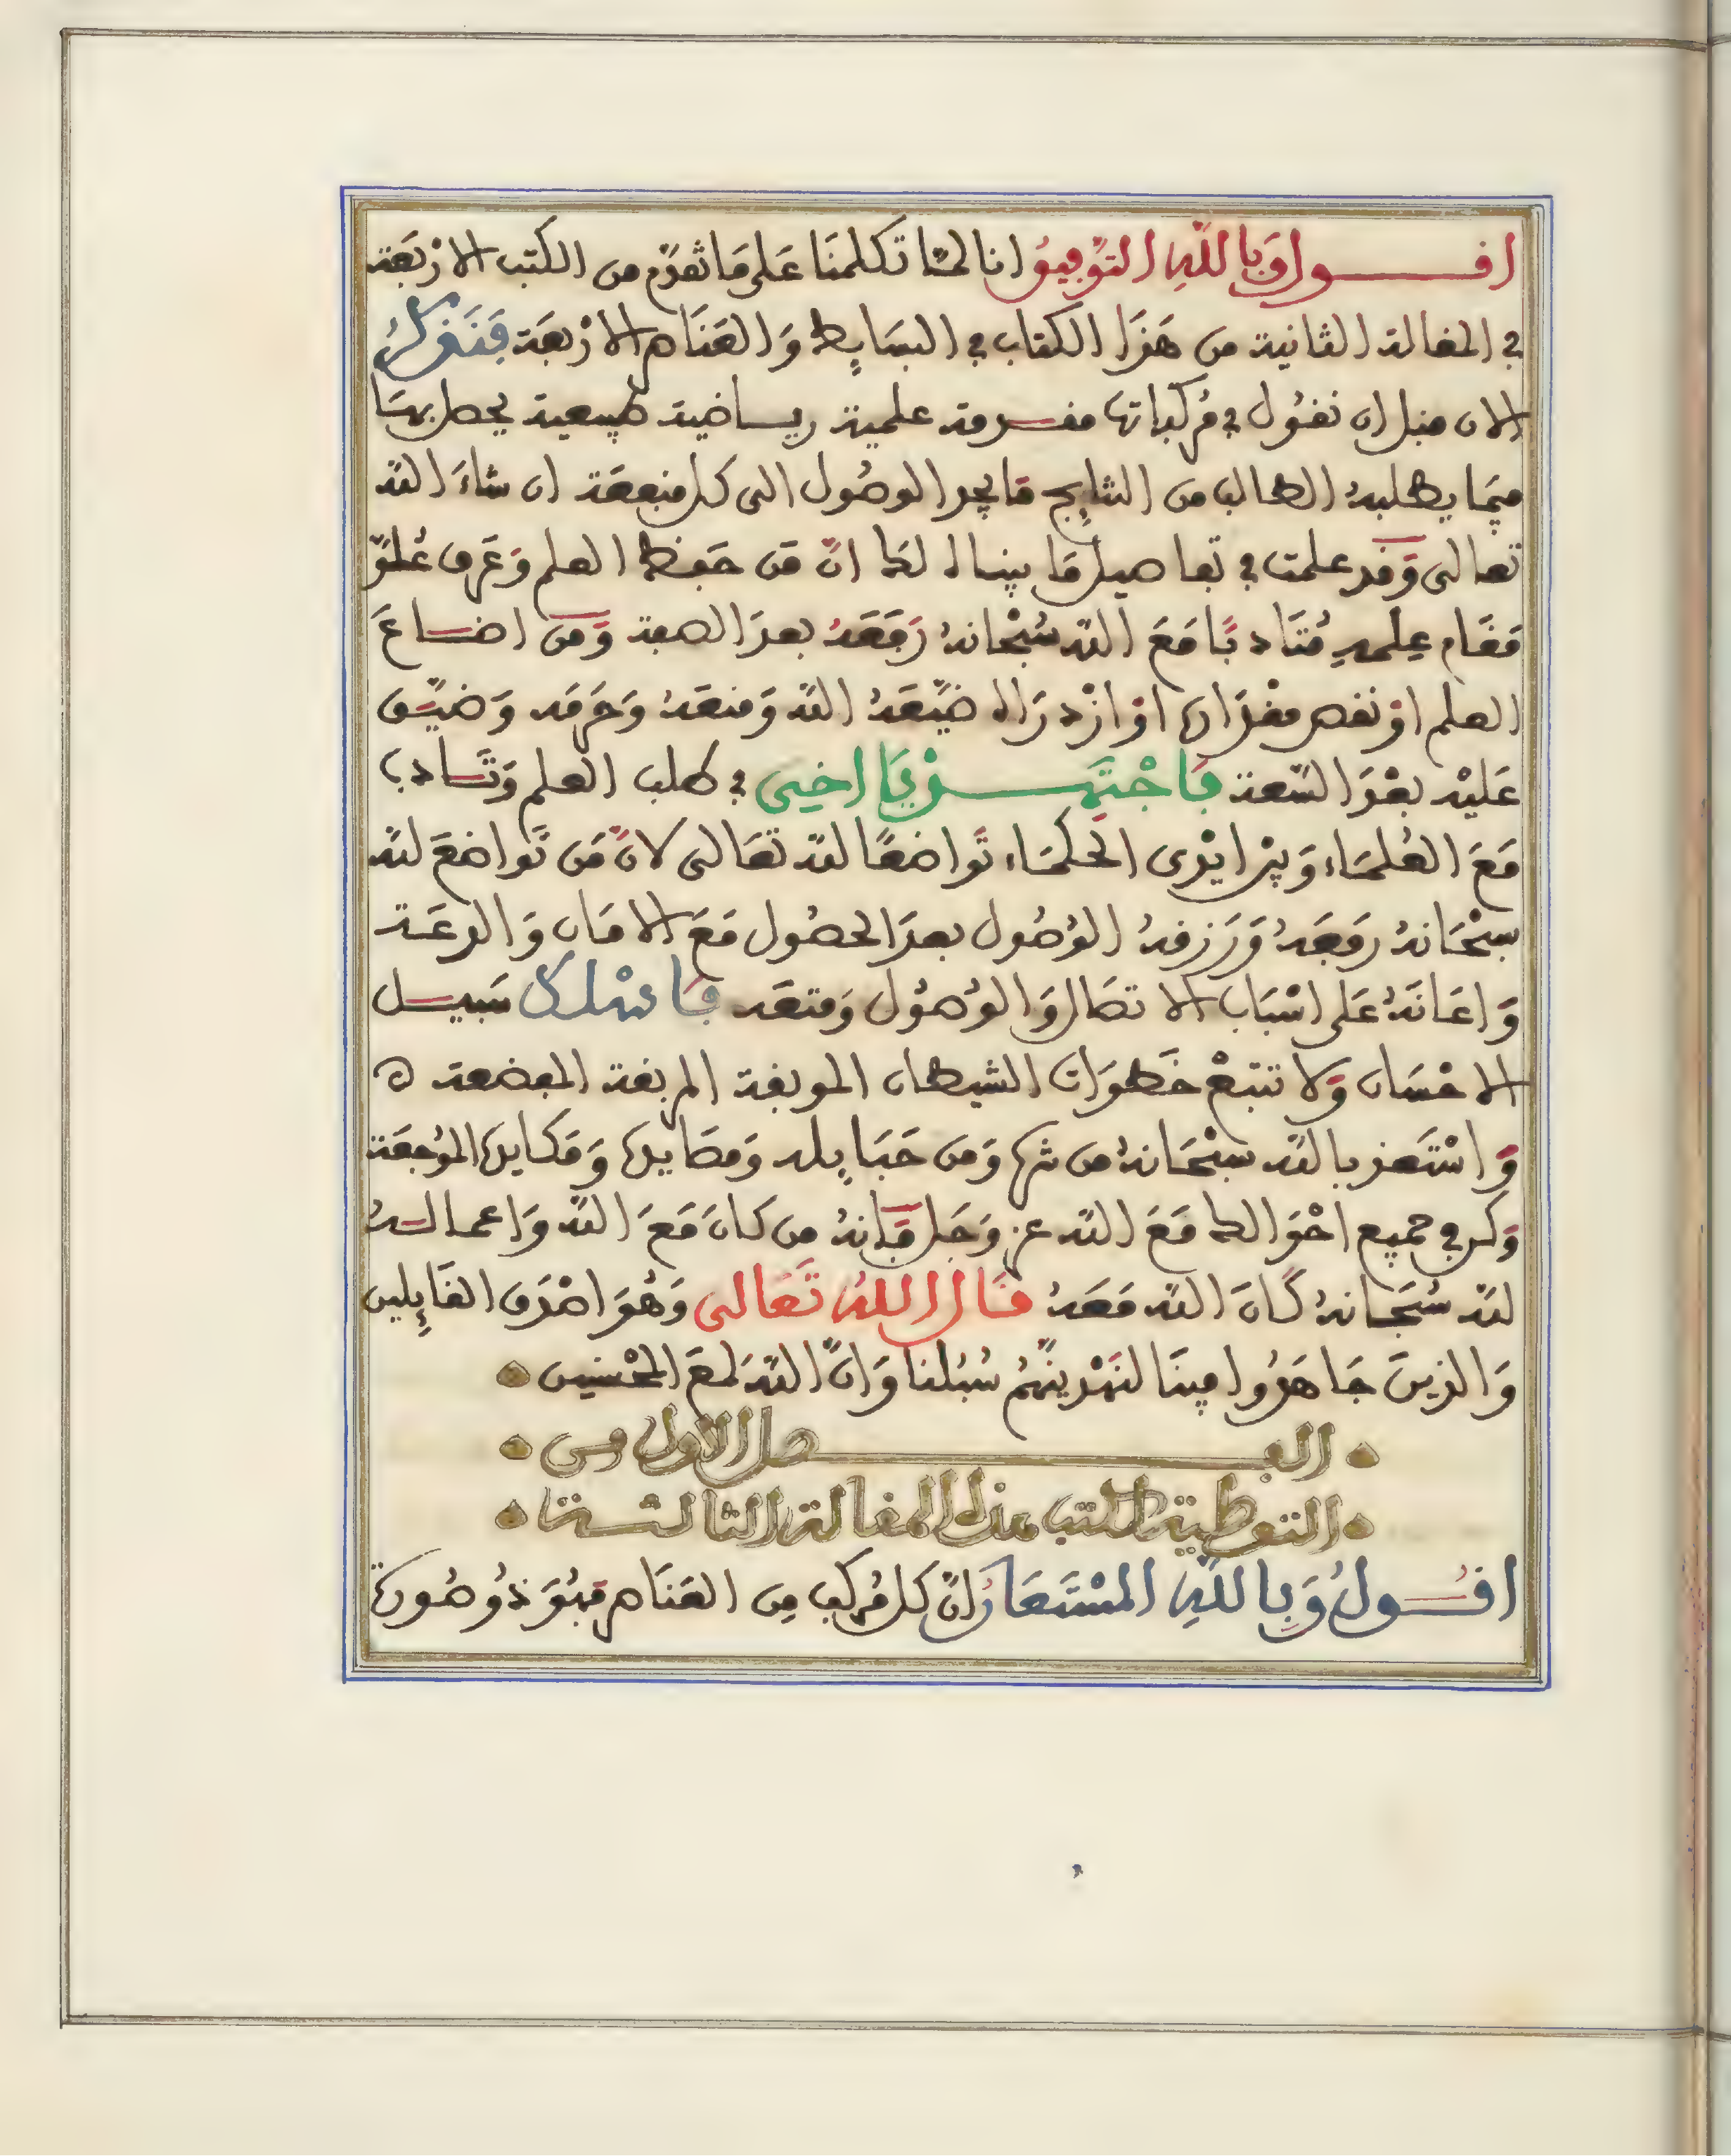 اقــول وَبِاللَّهِ التَّوْفِيقُ انا لمّا تكلمنَا عَلى مَا تَقدَّم من الكتب الارْبَعَة
في المقالة الثانية من هَذَا الكتاب في البسَايِط وَالعَنَاصر الارْبعَة فَنَذكرُ
الان قبل ان نقُول في مُركباتها مقــدمة علمية ريــاضية طبيعية يحصل بهَا
فيمَا يطلبهُ الطالب من النتايج مَا يجد الوصُول الى كل منفعَة ان شاءَ الله
تعالى وَقد علمت في تفاصيل مَا بيناه لك انّ مَن حَفظ العلم وَعَرف عُلوّ
مَقَام عِلمهِ مُتَادبًا مَعَ الله سُبْحَانهُ رَفَعَهُ بعدَ الضعة وَمن اضــاعَ
العلم اوْ نقص مقدَارهُ اوْ ازْدرَاه ضَيّعَهُ الله وَمنعَهُ وَحَرَمَه وَضيّــق
عَليْه بعْدَ السّعة فَاجْتَهِــدْ يَا اخِي في طلب العلم وَتَــادب
مَعَ العُلمَاء وَبيْن ايْدى الحكمَاء تَواضعًا لله تعَالى لانَّ مَن تَواضَعَ لله
سبْحَانهُ رَفعَهُ وَرَزقهُ الوُصُول بعدَ الحصُول مَعَ الامَان وَالدعَــة
وَاعَانَهُ عَلى اسْبَاب الاتصَال وَالوُصُول وَمتعَه فَاسْلك سَبيــل
الاحْسَان وَلا تتبعْ خَطوَات الشيطان الموبقة المربقة المفضعة ه
وَاسْتَعذ بالله سبْحَانهُ من شرّه وَمن حَبَايِله وَمصَايده وَمَكايده المُوجعَة
وَكن في جميع احْوَالك مَعَ الله عز وَجَل فَانهُ من كانَ مَعَ الله وَاعمالــهُ
لله سُبحَانهُ كَانَ الله مَعَهُ قَال اللهُ تَعَالى وَهُوَ اصْدَق القَايِلين
وَالذينَ جَاهَدُوا فينَا لنَهْدينَّهُم سُبُلنا وَانَّ الله لمعَ المحْسنين
الفــصل الاول من
التوطية لكتب هذه المقالة الثالثــة
اقُــولُ وَبِاللَّهِ المُسْتَعَان انّ كل مُركب مِن العَنَاصر فهُوَ ذُو صُورة